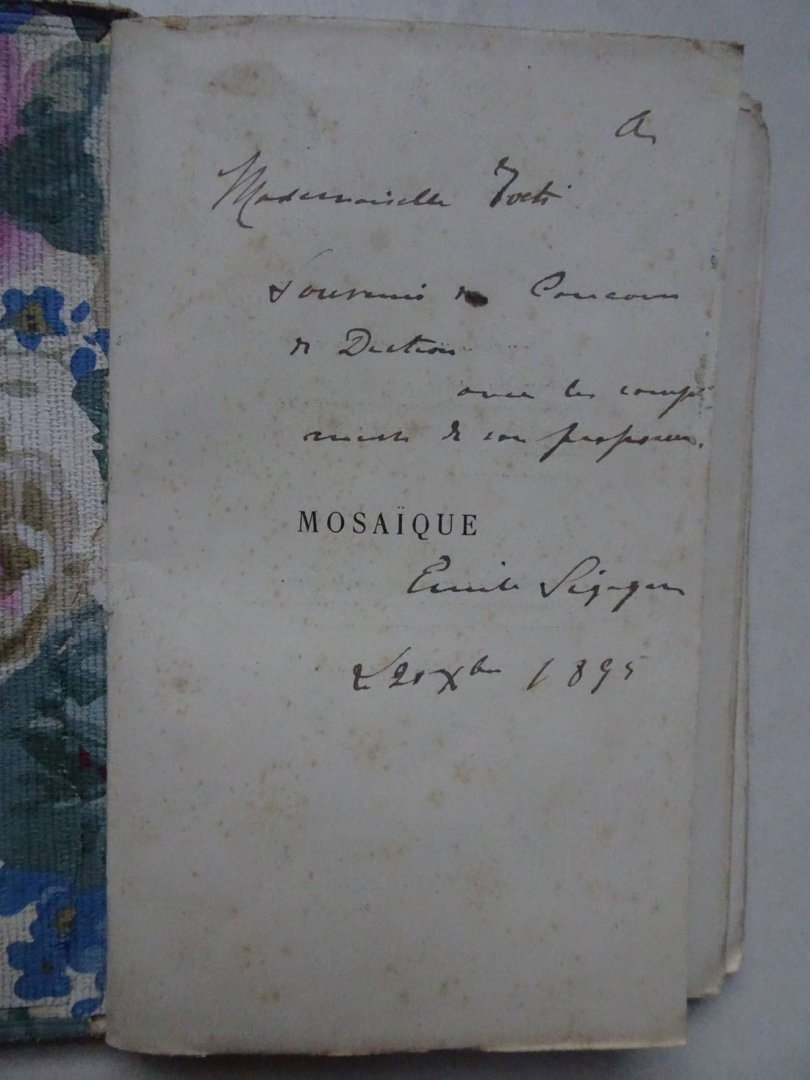 A
Mademoiselle
Souvenir du Concours
de Diction
avec les compli
ments de son professeur.
MOSAÏQUE
Emile
Le 20 Xbre 1895